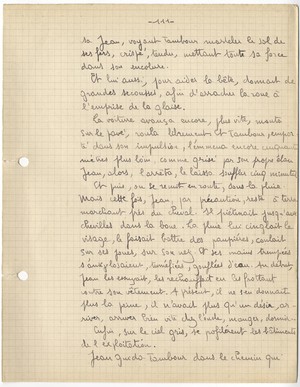 -111-
sa Jean, voyant Tambour marteler le sol de
ses fers, crispé, tendu, mettant toute sa force
dans son encolure.
Et lui aussi, pour aider la bête, donnait de
grandes secousses, afin d'arracher la roue à
l'emprise de la glaise.
La voiture avança encore, plus vite, monta
sur le pavé, roula librement et Tambour, emporté
dans son impulsion, l'emmena encore cinquante
mètres plus loin, comme grisé par son propre élan
Jean, alors, l'arrêta, le laissa souffler cinq minutes
Et puis, on se remit en route, sous la pluie
Mais cette fois, Jean, par précaution, resta à terre
marchant près du cheval. Il piétinait jusqu'aux
chevilles dans la boue. La pluie lui cinglait le
visage, le faisait battre des paupières, coulait
sur ses joues, sur son nez et ses mains trempées
gonflées d'eau
Jean les essuyait, les réchauffait en les frottant
contre son vêtement. A présent, il ne se donnait
plus la peine, il n'avait plus qu'un désir, ar-
river, arriver bien vite chez l'aide, manger, dormir
Enfin, sur le ciel gris, se profilèrent les bâtiments
de l'exploitation.
Jean guida Tambour dans le chemin qui